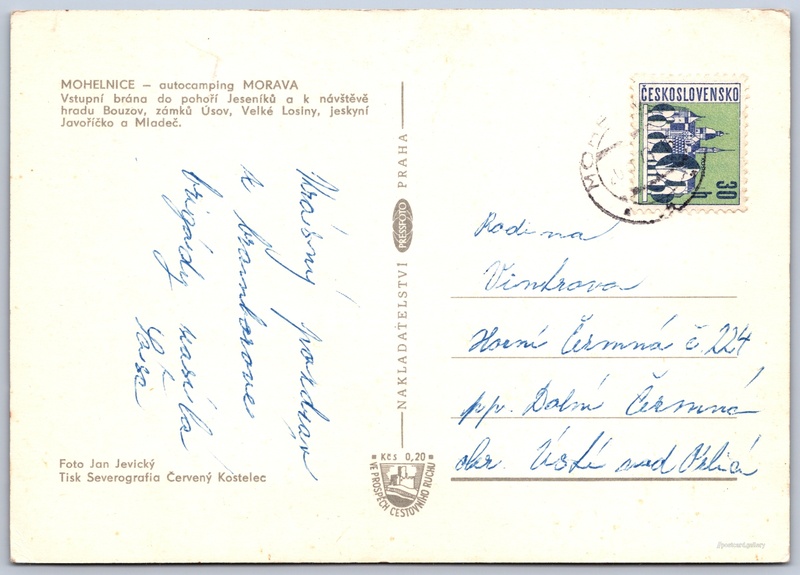 MOHELNICE – autocamping MORAVA
Vstupní brána do pohoří Jeseníků a k návštěvě
hradu Bouzov, zámků Úsov, Velké Losiny, jeskyní
Javoříčko a Mladeč.
Krásný pozdrav
z bramborové
brigády zasílá
Foto Jan Jevický
Tisk Severografia Červený Kostelec
NAKLADATELSTVÍ PRESSFOTO PRAHA
Kčs 0,20
VE PROSPĚCH CESTOVNÍHO RUCHU
ČESKOSLOVENSKO
30 h
Rodina
Vindrova
Horní Čermná č. 224
pp. Dolní Čermná
okr. Ústí nad Orlicí